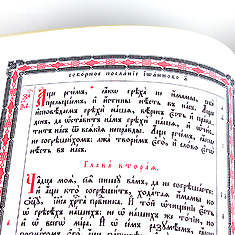 соборное посланіе іѡанново а҃
Аще рече́мъ, ꙗ҆́кѡ грѣха̀ не и҆́мамы, себѐ
прельща́емъ, и҆ и҆́стины нѣ́сть въ на́съ. А҆́ще
и҆сповѣ́даемъ грѣхѝ на́шѧ, вѣ́ренъ є҆́сть и҆ пра́ве-
денъ, да ѡ҆ста́витъ на́мъ грѣхѝ на́шѧ, и҆ ѡ҆чи́-
ститъ на́съ ѿ всѧ́кїѧ непра́вды. А҆́ще рече́мъ, ꙗ҆́кѡ
не согрѣши́хомъ: лжа̀ твори́мъ є҆го̀, и҆ сло́во є҆гѡ̀
нѣ́сть въ на́съ.
Глава̀ втора́ѧ.
Ча̑дца моѧ̑, сїѧ̑ пишꙋ̀ ва́мъ, да не согрѣша́ете:
и҆ а҆́ще кто̀ согрѣши́тъ, хода́таѧ и҆́мамы ко
и҆и҃са хр҇та̀ првⷣника. И҆ то́й ѡ҆чище́нїе є҆́сть
ѡ҆ грѣсѣ́хъ на́шихъ: не ѡ҆ на́шихъ же то́чїю, но
И҆ ѡ҆ се́мъ разꙋмѣ́емъ,